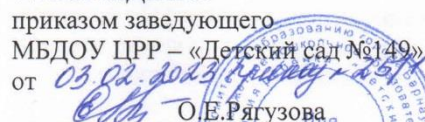 приказом заведующего
МБДОУ ЦРР – «Детский сад №149»
от 03.02.2023
О.Е.Рягузова